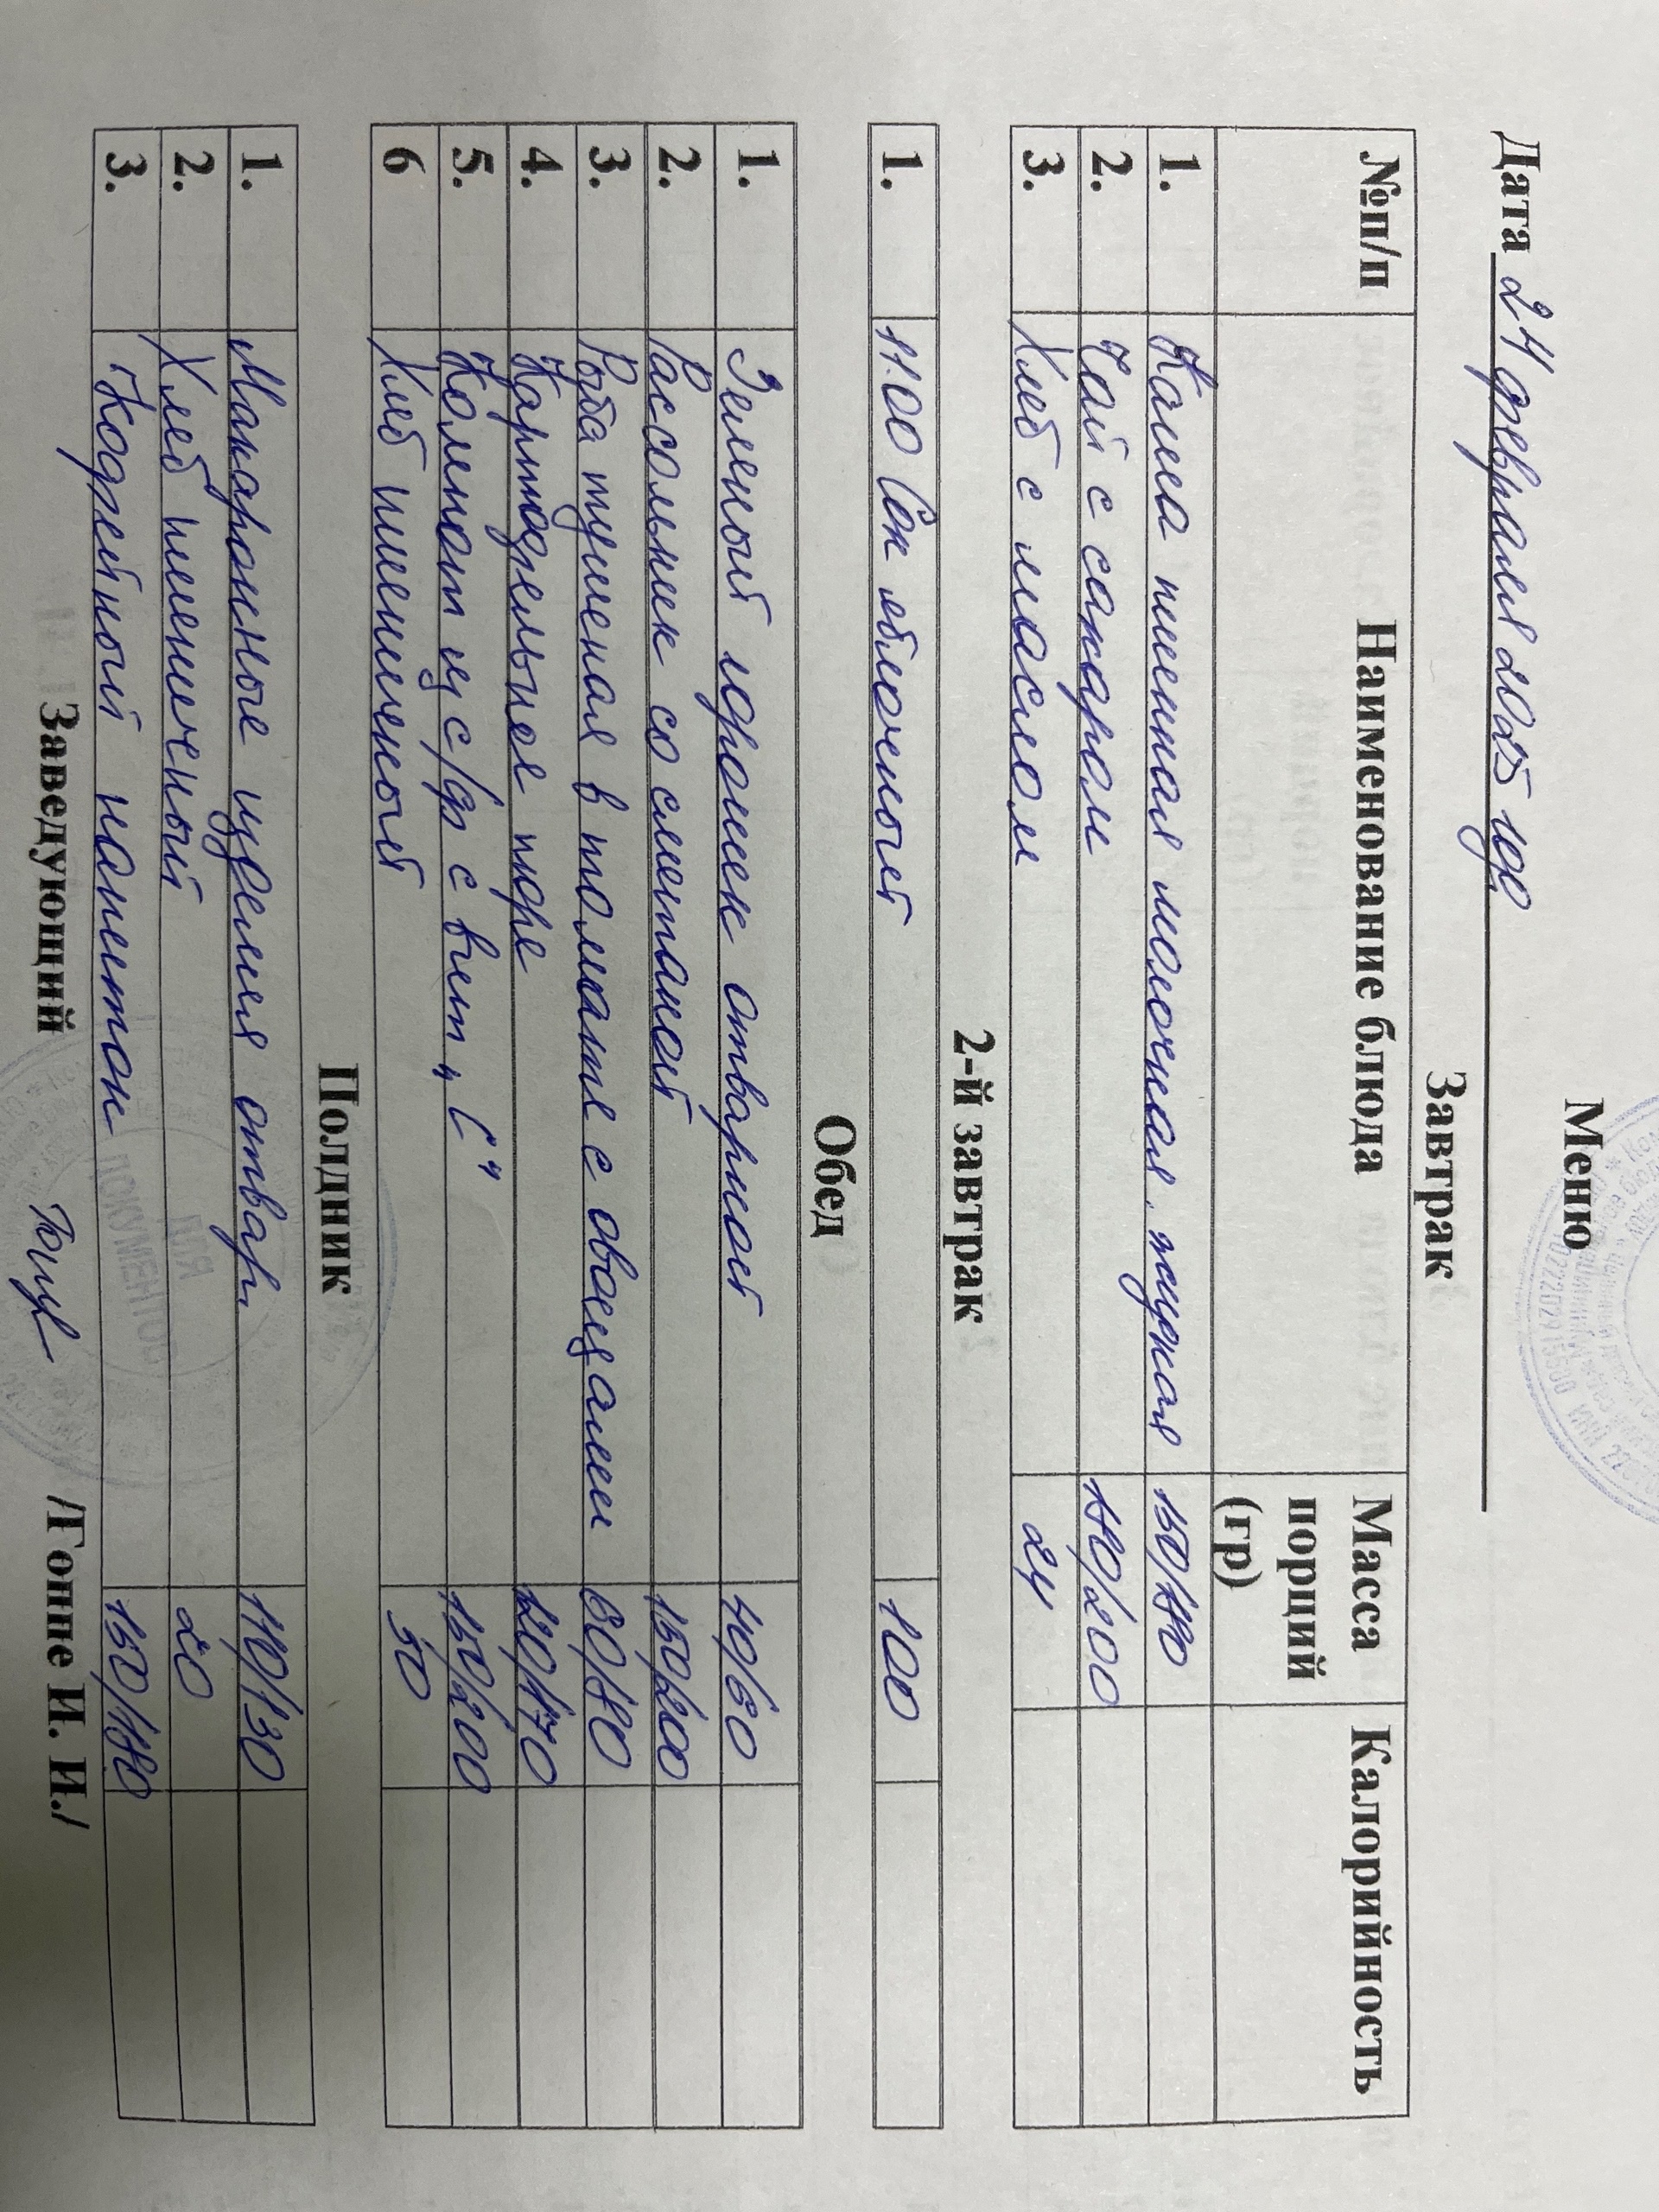 Меню
Дата 24 февраля 2025 год
Завтрак
№п/п Наименование блюда Масса порций (гр) Калорийность
1. Каша пшенная молочная жидкая 150/180
2. Чай с сахаром 180/200
3. Хлеб с маслом 24
2-й завтрак
1. 11.00 Сок яблочный 100
Обед
1. Зеленый горошек отварной 40/60
2. Рассольник со сметаной 150/200
3. Рыба тушеная в томате с овощами 60/80
4. Картофельное пюре 120/170
5. Компот из с/ф с вит „С" 150/200
6 Хлеб пшеничный 30
Полдник
1. Макаронные изделия отвар. 110/130
2. Хлеб пшеничный 20
3. Кофейный напиток 150/180
ДЛЯ
ДОКУМЕНТОВ
Заведующий /Гоппе И. И./